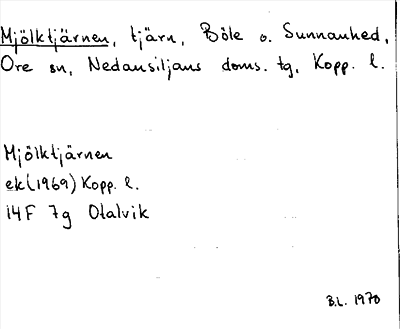 Mjölktjärnen, tjärn, Böle o. Sunnanhed,
Ore sn, Nedansiljans doms. tg, Kopp. l.
Mjölktjärnen
ek (1969) Kopp. l.
14F 7g Otalvik
B.L. 1970